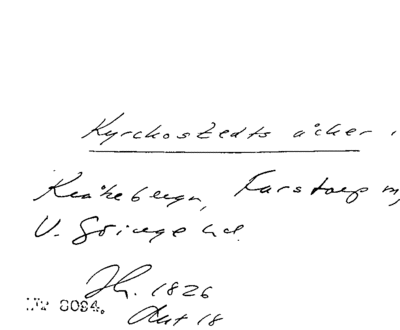 Kyrckostedts åcker.
Kråkebergn, Farstorp
V. Göinge hd.
Jh. 1826
Akt 18
8084.